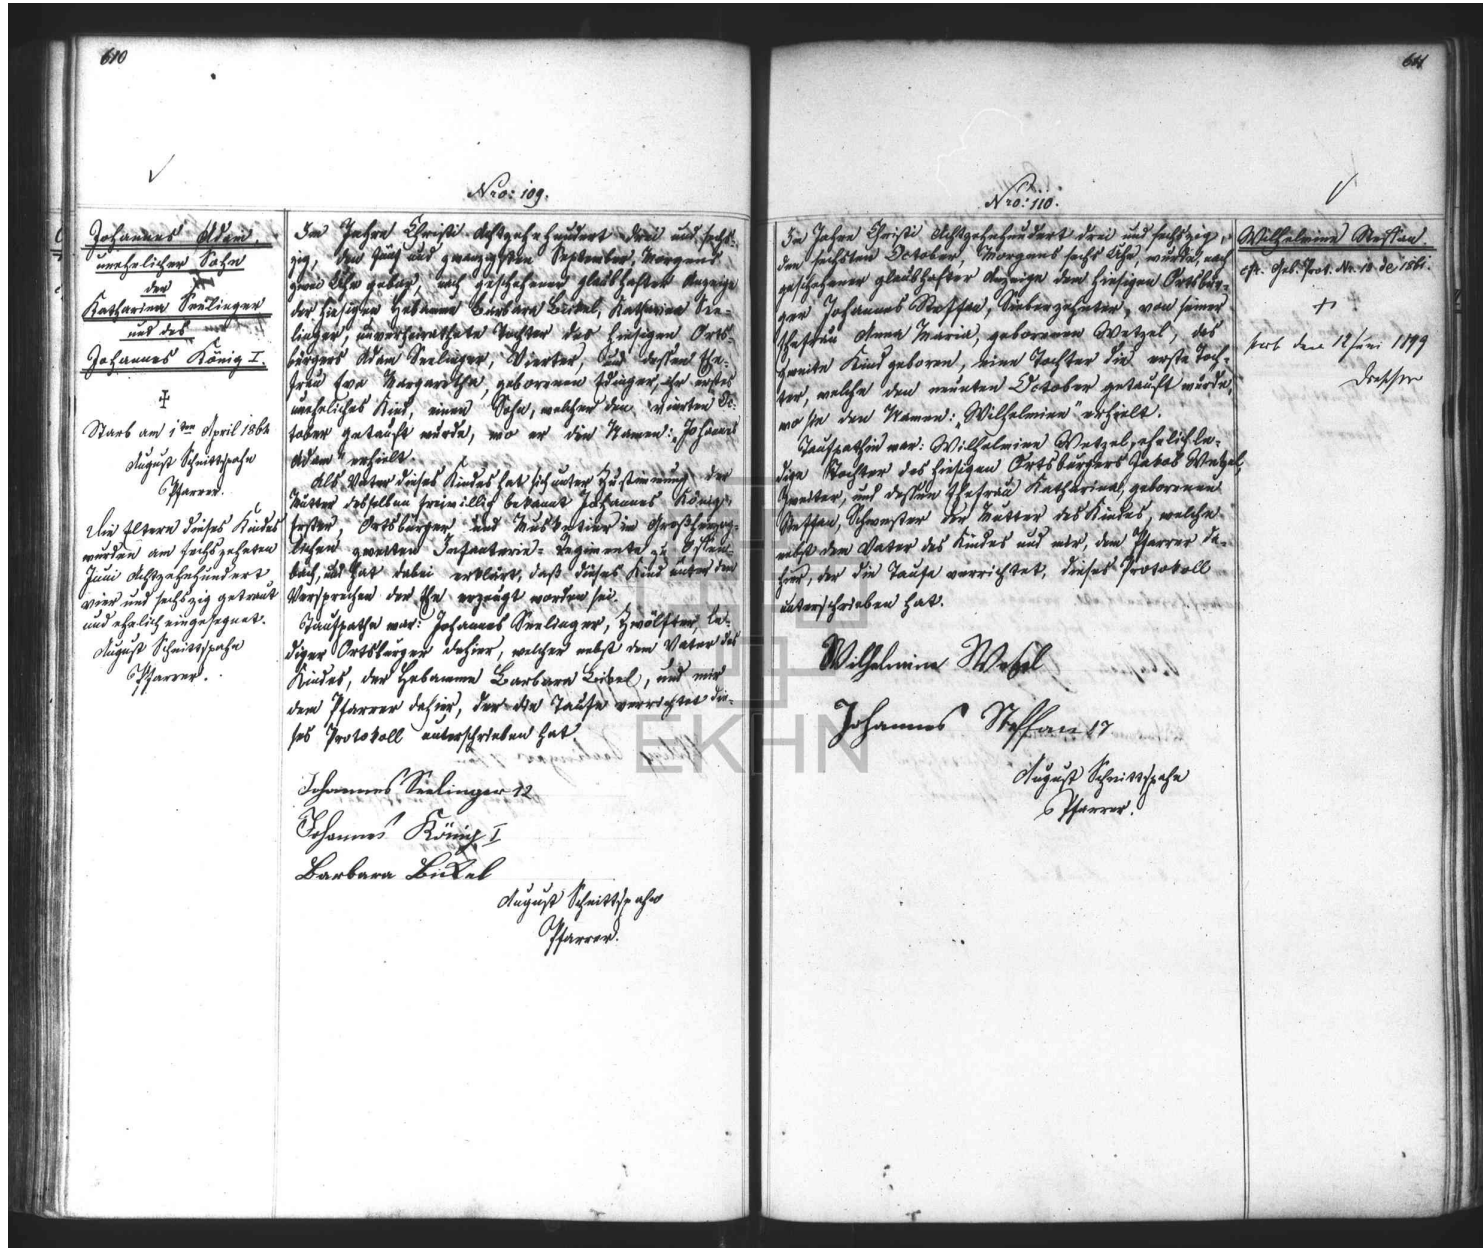 610
Nro: 109.
Johannes Adam,
unehelicher Sohn
der
Katharina Seelinger
und des
Johannes König I.
Starb am 1ten April 1864
August Schnittspahn
Pfarrer.
Die Eltern dieses Kindes
wurden am sechszehnten
Juni Achtzehnhundert
vier und sechszig getraut
und ehelich eingesegnet.
August Schnittspahn
Pfarrer.
Im Jahre Christi Achtzehnhundert drei und sechs-
zig, den fünf und zwanzigsten September, Morgens
zwei Uhr gebar, nach geschehener glaubhafter Anzeige
der hiesigen Hebamme Barbara Bickel, Katharina See-
linger, unverheirathete Tochter des hiesigen Orts-
bürgers Adam Seelinger, Vierter, und dessen Ehe-
frau Eva Margaretha, geborenen ihr erstes
uneheliches Kind, einen Sohn, welcher den vierten Oc-
tober getauft wurde, wo er den Namen: „Johannes
Adam" erhielt.
Als Vater dieses Kindes hat sich unter Zustimmung der
Mutter desselben freiwillig bekannt Johannes König,
Erster, Ortsbürger, und Musketier im Großherzog-
lichen zweiten Infanterie-Regimente zu Offen-
bach, und hat dabei erklärt, daß dieses Kind unter dem
Versprechen der Ehe erzeugt worden sei.
Taufpathe war: Johannes Seelinger, Zwölfter, le-
diger Ortsbürger dahier, welcher nebst dem Vater des
Kindes, der Hebamme Barbara Bickel, und mir
dem Pfarrer dahier, der die Taufe verrichtet die-
ses Protokoll unterschrieben hat
Johannes Seelinger 12
Johannes König I
Barbara Bickel
August Schnittspahn
Pfarrer.
611
Nro: 110.
Im Jahre Christi Achtzehnhundert drei und sechszig,
den sechsten October, Morgens sechs Uhr, wurde, nach
geschehener glaubhafter Anzeige dem hiesigen Ortsbür-
ger Johannes Steffan, Siebenzehnter, von seiner
Ehefrau Anna Maria, geborenen Wetzel, das
zweite Kind geboren, eine Tochter die erste Toch-
ter, welche den neunten October getauft wurde,
wo sie den Namen: „Wilhelmine" erhielt.
Taufpathin war: Wilhelmine Wetzel, ehelich le-
dige Tochter des hiesigen Ortsbürgers Jakob Wetzel,
Zweiter, und dessen Ehefrau Katharina, geborenen
Steffan, Schwester der Mutter des Kindes, welche
nebst dem Vater des Kindes und mir, dem Pfarrer da-
hier, der die Taufe verrichtet, dieses Protokoll
unterschrieben hat.
Wilhelmine Wetzel
Johannes Steffan 17
August Schnittspahn
Pfarrer.
Wilhelmine Steffan
cfr. Geb. Prot. Nr. 10 de 1861.
starb den 12 Juni 1899
EKHN